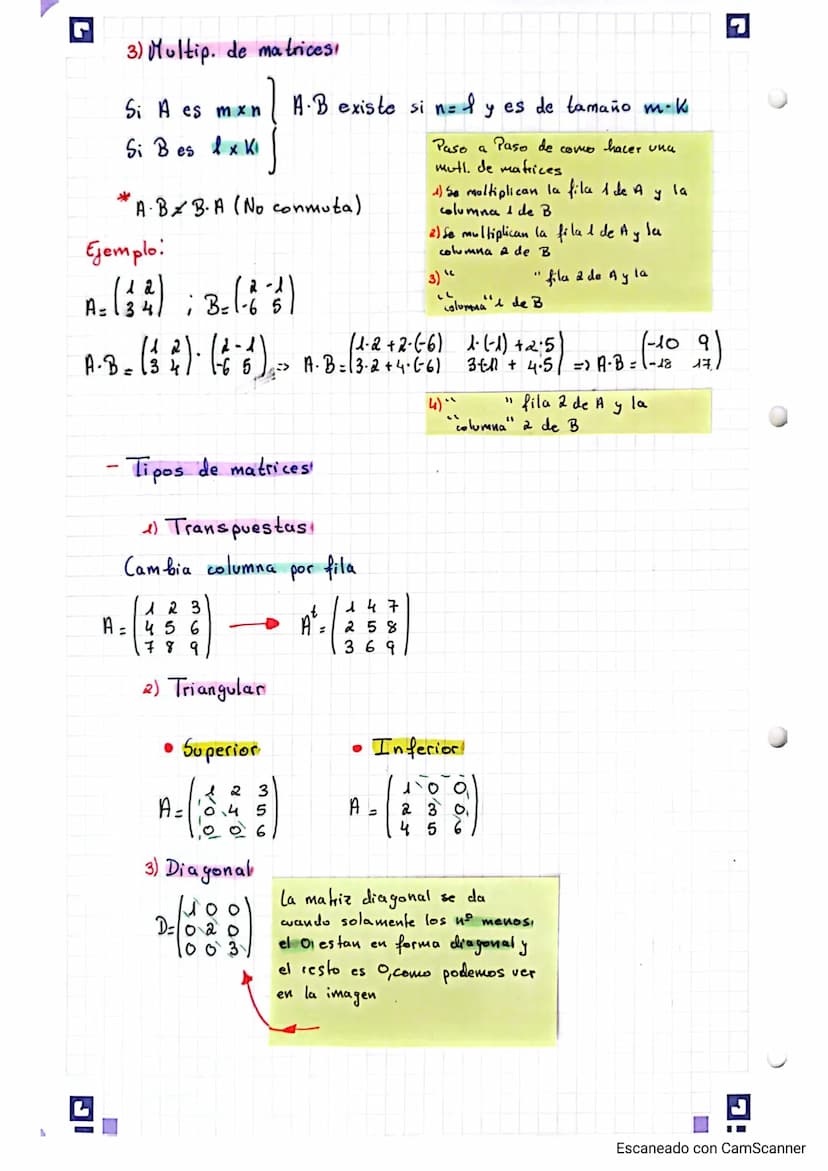 3) Multip. de matrices
Si A es m x n
Si B es l x K
A·B existe si n = l y es de tamaño m·K
* A·B ≠ B·A (No conmuta)
Paso a Paso de como hacer una
mutl. de matrices
1) Se moltiplican la fila 1 de A y la
columna 1 de B
2) Se multiplican la fila 1 de A y la
columna 2 de B
3) " " fila 2 de A y la
"columna" 1 de B
Ejemplo:
A = (1 2
3 4) ; B = (2 -1
-6 5)
A·B = (1 2
3 4) · (2 -1
-6 5) => A·B = (1·2 + 2·(-6) 1·(-1) + 2·5
3·2 + 4·(-6) 3·(-1) + 4·5) => A·B = (-10 9
-18 17)
4) " " fila 2 de A y la
"columna" 2 de B
- Tipos de matrices
1) Transpuestas
Cambia columna por fila
A = (1 2 3
4 5 6
7 8 9) → Aᵗ = (1 4 7
2 5 8
3 6 9)
2) Triangular
• Superior
A = (1 2 3
0 4 5
0 0 6)
• Inferior
A = (1 0 0
2 3 0
4 5 6)
3) Diagonal
D = (1 0 0
0 2 0
0 0 3)
La matriz diagonal se da
cuando solamente los nº menos
el 0, estan en forma diagonal y
el resto es 0, como podemos ver
en la imagen
Escaneado con CamScanner